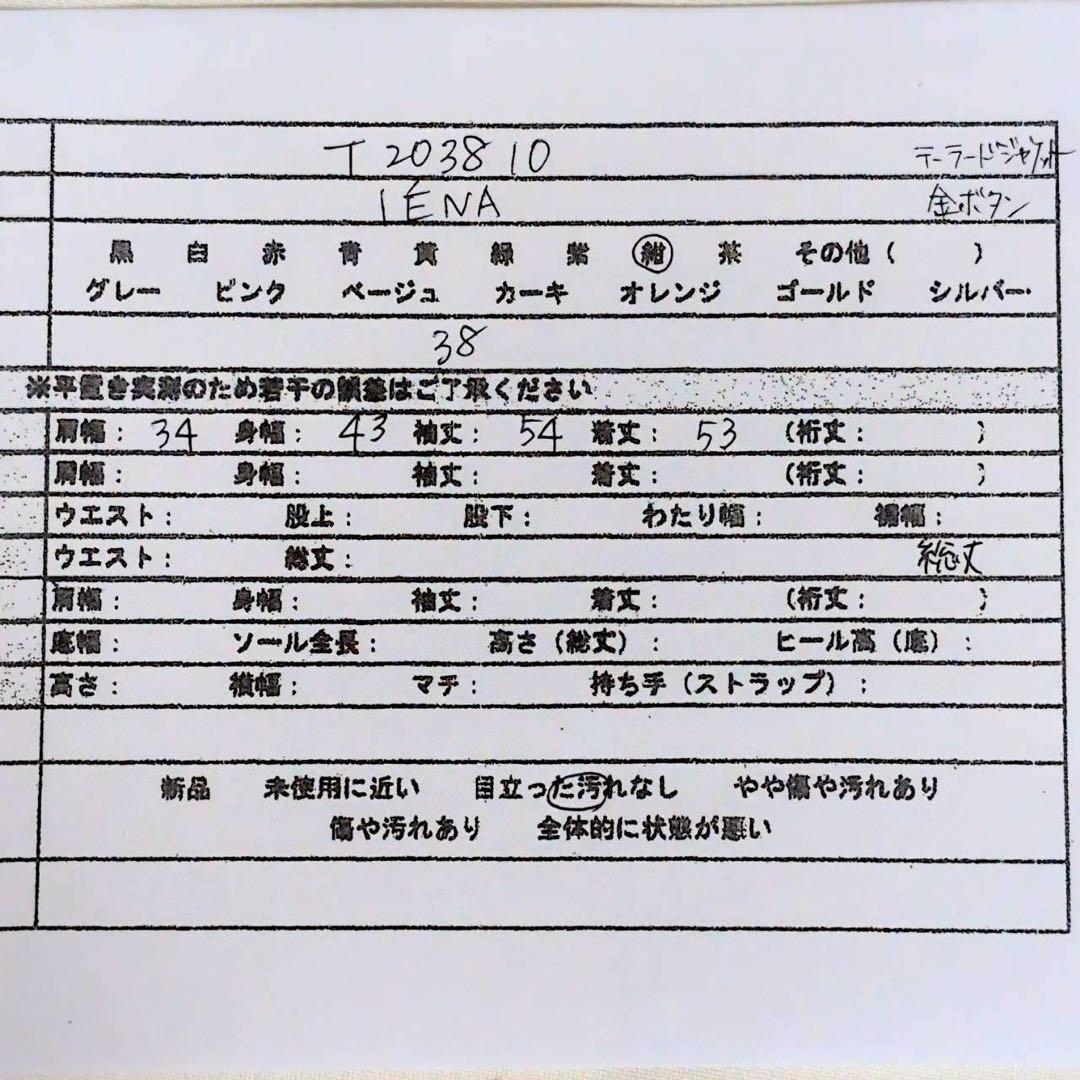 T203810 テーラードジャケット
IÉNA 金ボタン
黒 白 赤 青 黄 緑 紫 紺 茶 その他（ ）
グレー ピンク ベージュ カーキ オレンジ ゴールド シルバー
38
※平置き実測のため若干の誤差はご了承ください
肩幅： 34 身幅： 43 袖丈： 54 着丈： 53 （裄丈： ）
肩幅： 身幅： 袖丈： 着丈： （裄丈： ）
ウエスト： 股上： 股下： わたり幅： 裾幅：
ウエスト： 総丈： 総丈
肩幅： 身幅： 袖丈： 着丈： （裄丈： ）
底幅： ソール全長： 高さ（総丈）： ヒール高（底）：
高さ： 横幅： マチ： 持ち手（ストラップ）：
新品 未使用に近い 目立った汚れなし やや傷や汚れあり
傷や汚れあり 全体的に状態が悪い